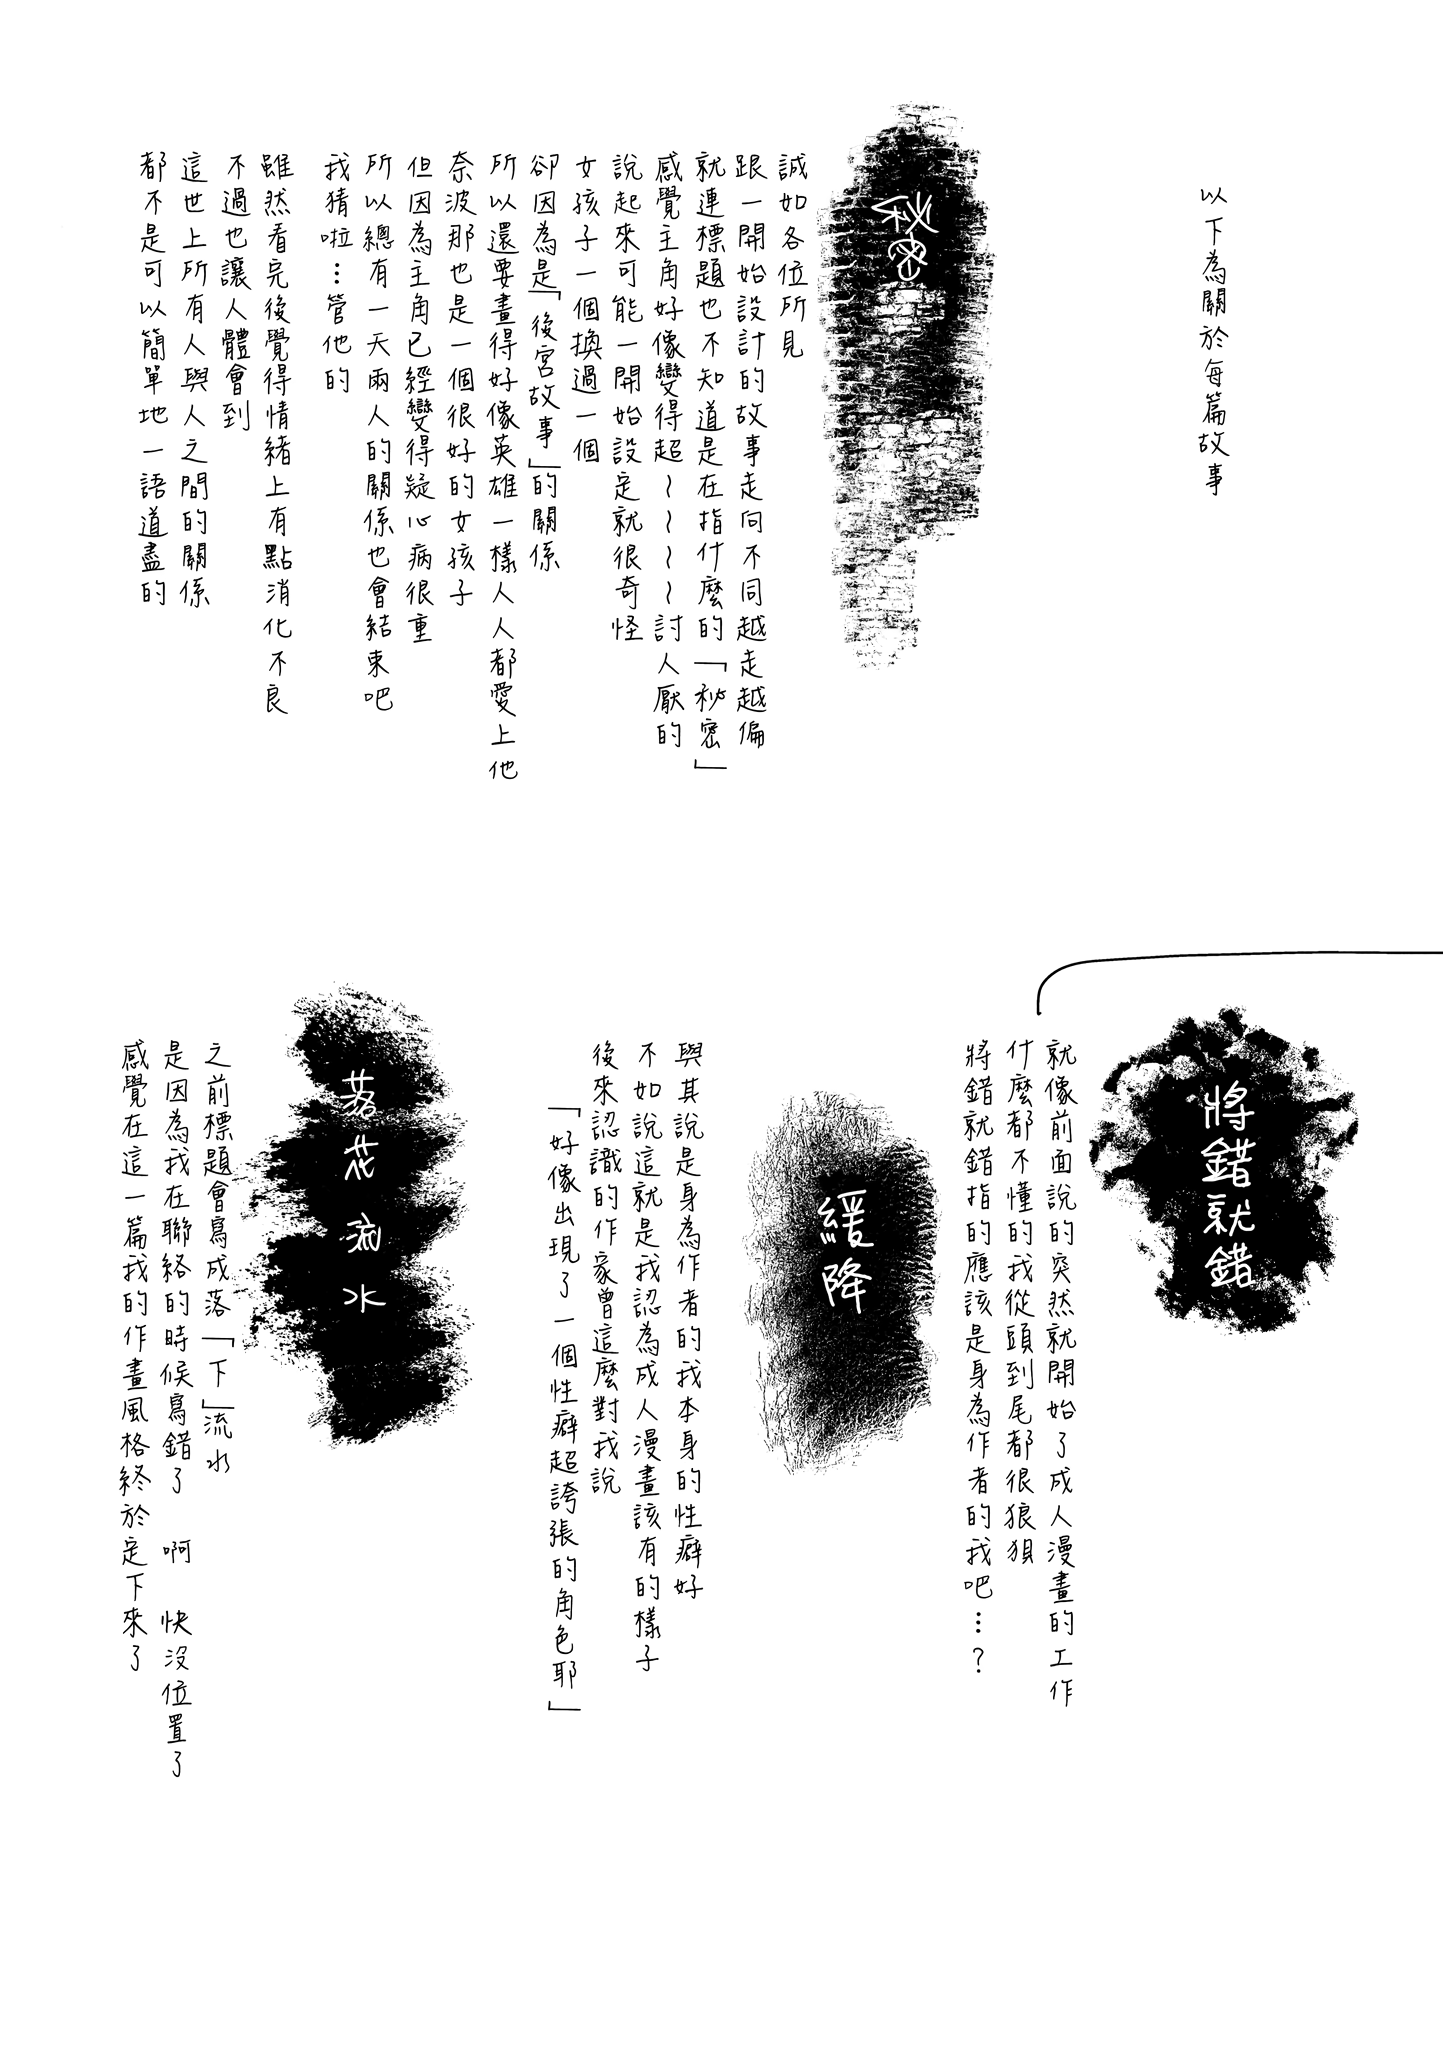 以下為關於每篇故事
秘密
誠如各位所見
跟一開始設計的故事走向不同越走越偏
就連標題也不知道是在指什麼的「秘密」
感覺主角好像變得超～～～～討人厭的
說起來可能一開始設定就很奇怪
女孩子一個換過一個
卻因為是「後宮故事」的關係
所以還要畫得好像英雄一樣人人都愛上他
奈波那也是一個很好的女孩子
但因為主角已經變得疑心病很重
所以總有一天兩人的關係也會結束吧
我猜啦…管他的
雖然看完後覺得情緒上有點消化不良
不過也讓人體會到
這世上所有人與人之間的關係
都不是可以簡單地一語道盡的
將錯就錯
就像前面說的突然就開始了成人漫畫的工作
什麼都不懂的我從頭到尾都很狼狽
將錯就錯指的應該是身為作者的我吧…？
緩降
與其說是身為作者的我本身的性癖好
不如說這就是我認為成人漫畫該有的樣子
後來認識的作家曾這麼對我說
「好像出現了一個性癖超誇張的角色耶」
落花流水
之前標題會寫成落「下」流水
是因為我在聯絡的時候寫錯了　啊　快沒位置了
感覺在這一篇我的作畫風格終於定下來了